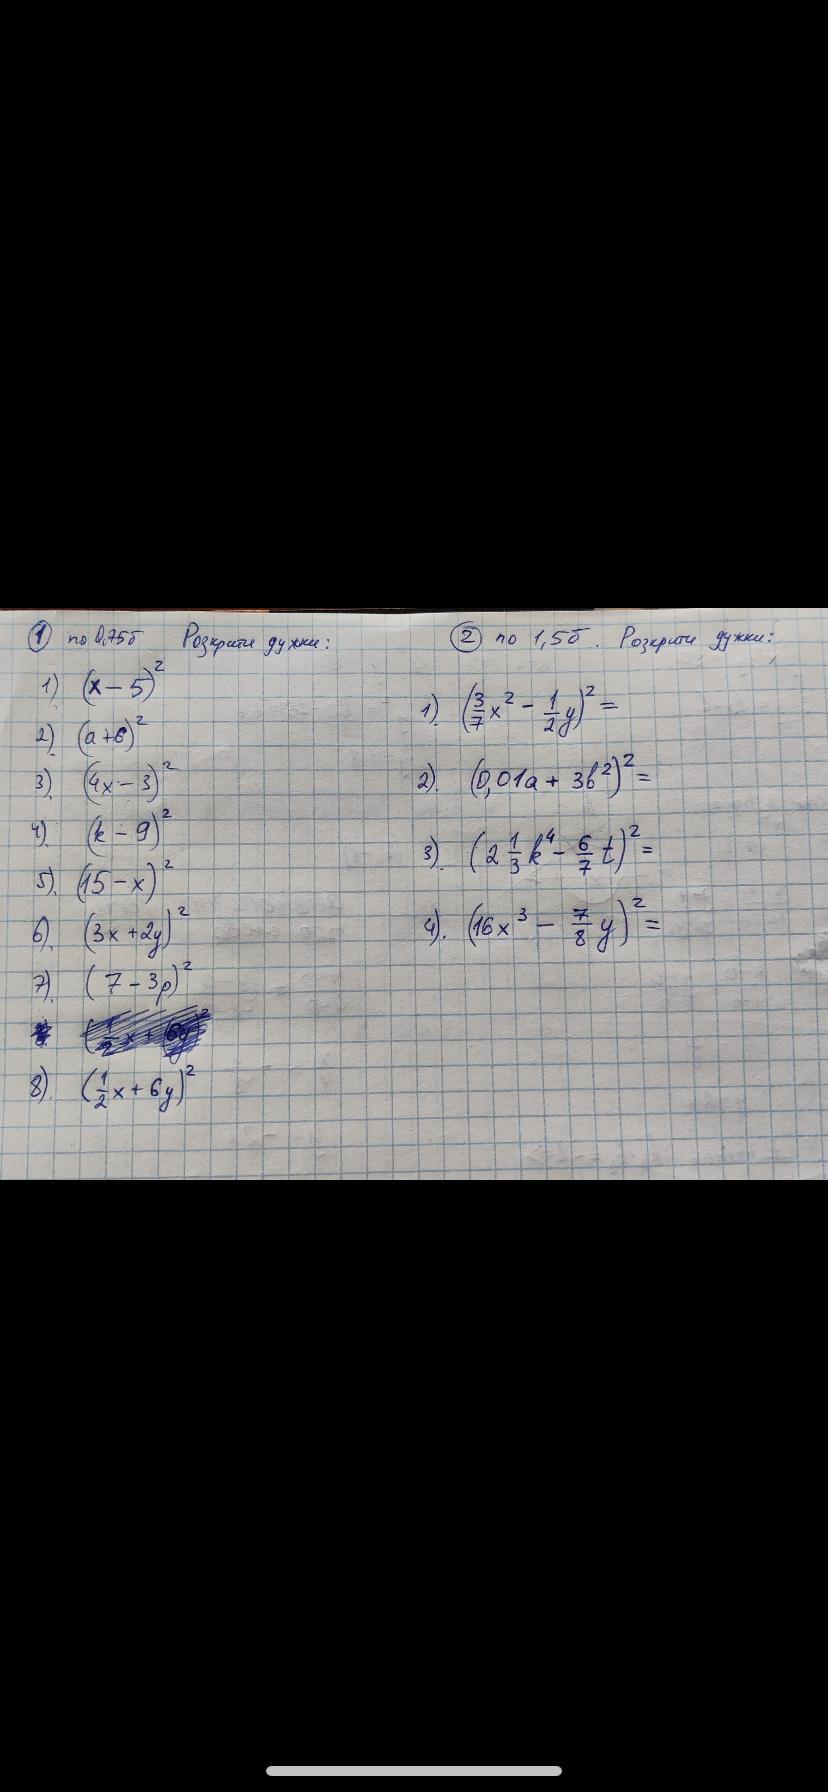 1 по 0,75б Розкрити дужки:
1) (x - 5)²
2) (a + 6)²
3) (4x - 3)²
4) (k - 9)²
5) (15 - x)²
6) (3x + 2y)²
7) (7 - 3p)²
8) (1/2 x + 6y)²
2 по 1,5б. Розкрити дужки:
1) (3/7 x² - 1/2 y)² =
2) (0,01a + 3b²)² =
3) (2 1/3 k⁴ - 6/7 t)² =
4) (16x³ - 7/8 y)² =